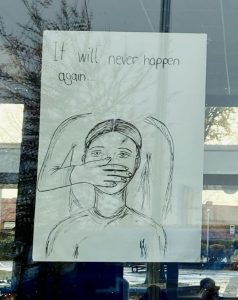 It will never happen
again...